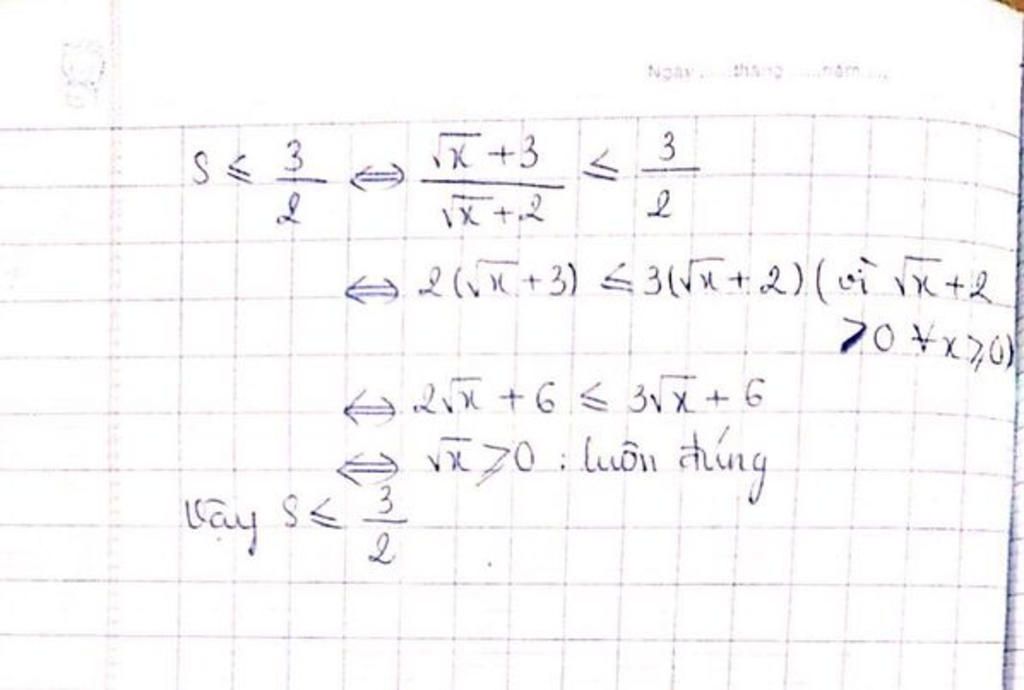 Ngày ... tháng ... năm ...
S ≤ 3/2 ⇔ (√x + 3)/(√x + 2) ≤ 3/2
⇔ 2(√x + 3) ≤ 3(√x + 2) (vì √x + 2
>0 ∀x ≥ 0)
⇔ 2√x + 6 ≤ 3√x + 6
⇔ √x ≥ 0 : luôn đúng
Vậy S ≤ 3/2